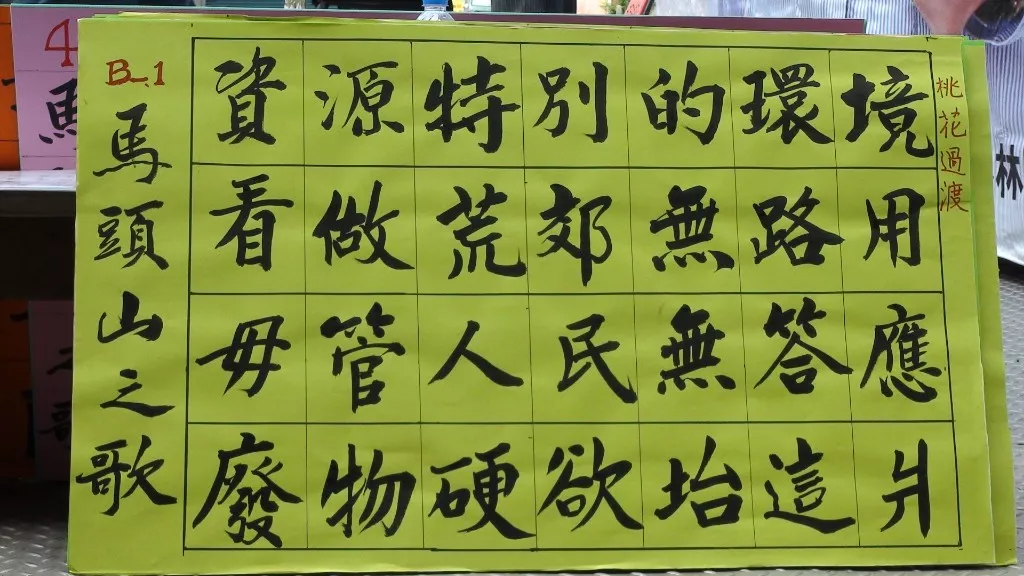 B-1
馬頭山之歌
資源特別的環境
看做荒郊無路用
毋管人民無答應
廢物硬欲坮這爿
桃花過渡
4
馬
林